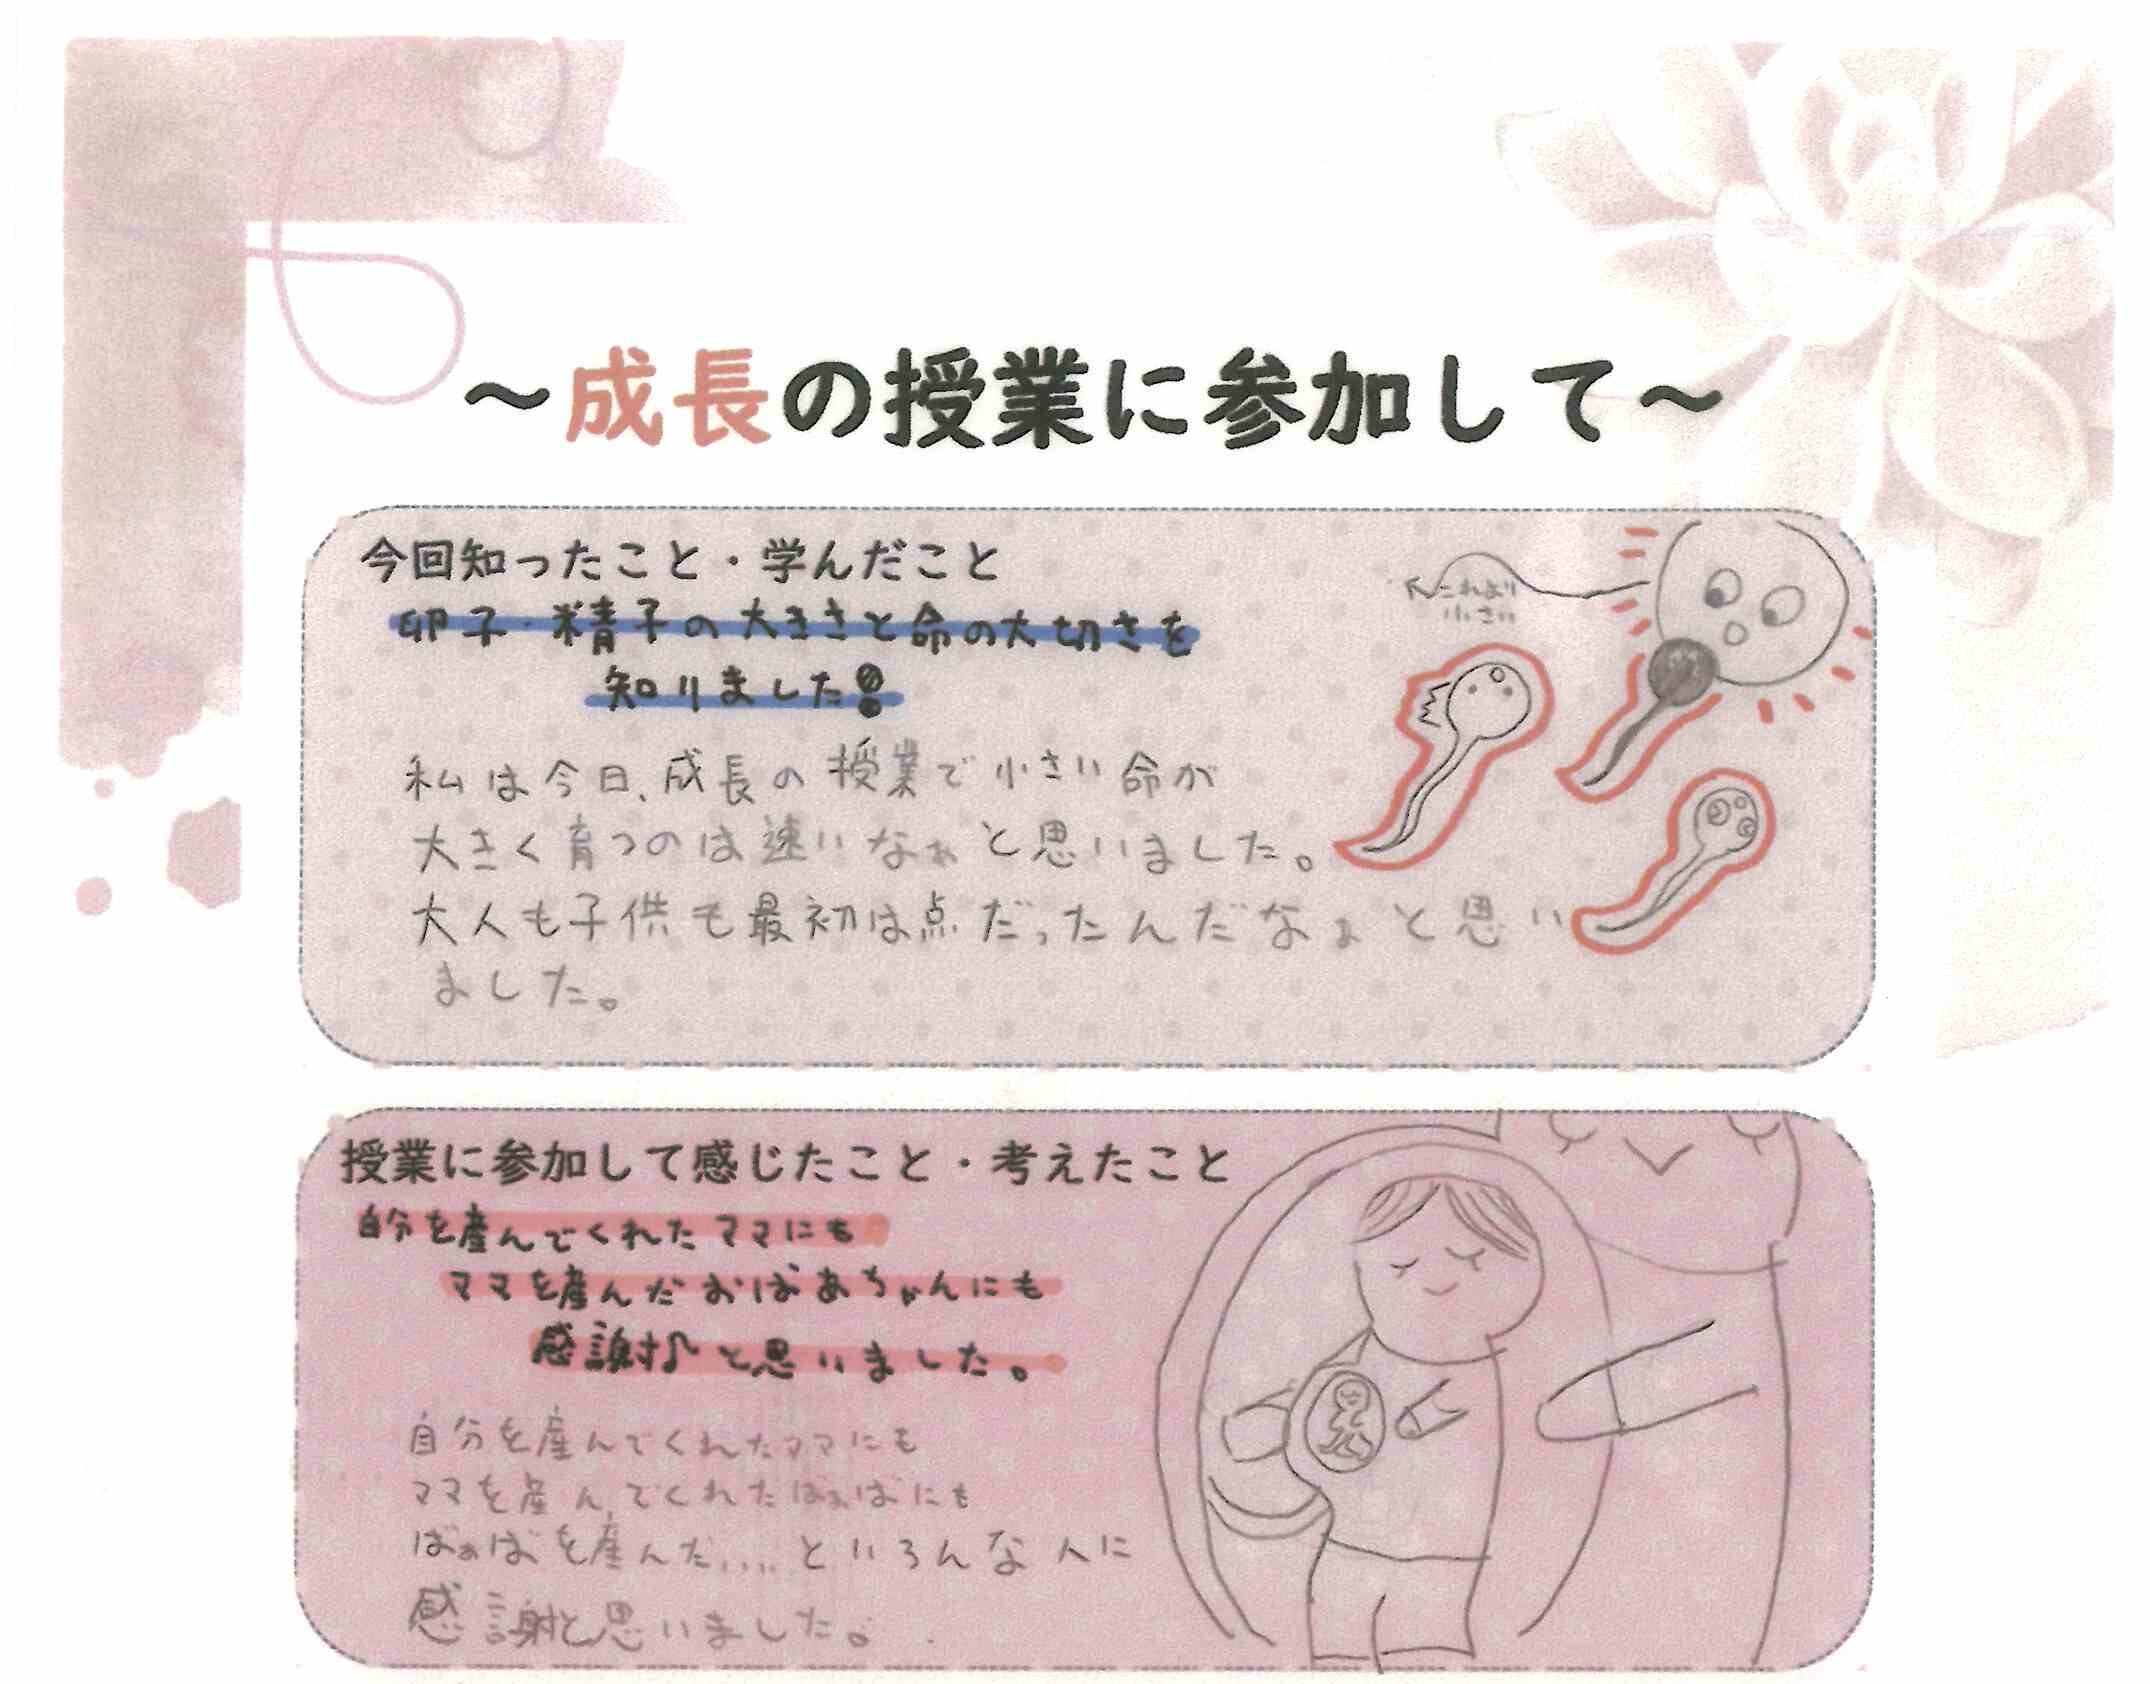 ～成長の授業に参加して～
今回知ったこと・学んだこと
卵子・精子の大きさと命の大切さを
知りました!
これより
小さい
私は今日、成長の授業で小さい命が
大きく育つのは速いなぁと思いました。
大人も子供も最初は点だったんだなぁと思い
ました。
授業に参加して感じたこと・考えたこと
自分を産んでくれたママにも
ママを産んだおばあちゃんにも
感謝♪と思いました。
自分を産んでくれたママにも
ママを産んでくれたばぁばにも
ばぁばを産んだ....といろんな人に
感謝と思いました。